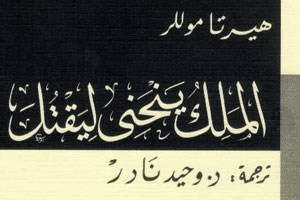 هيرتا موللر
الملك ينحني ليقتل
ترجمة: د. وحيد نادر